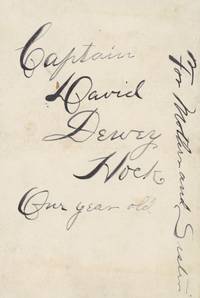 Captain
David
Dewey
Hock
One year old
For Mother and Sister